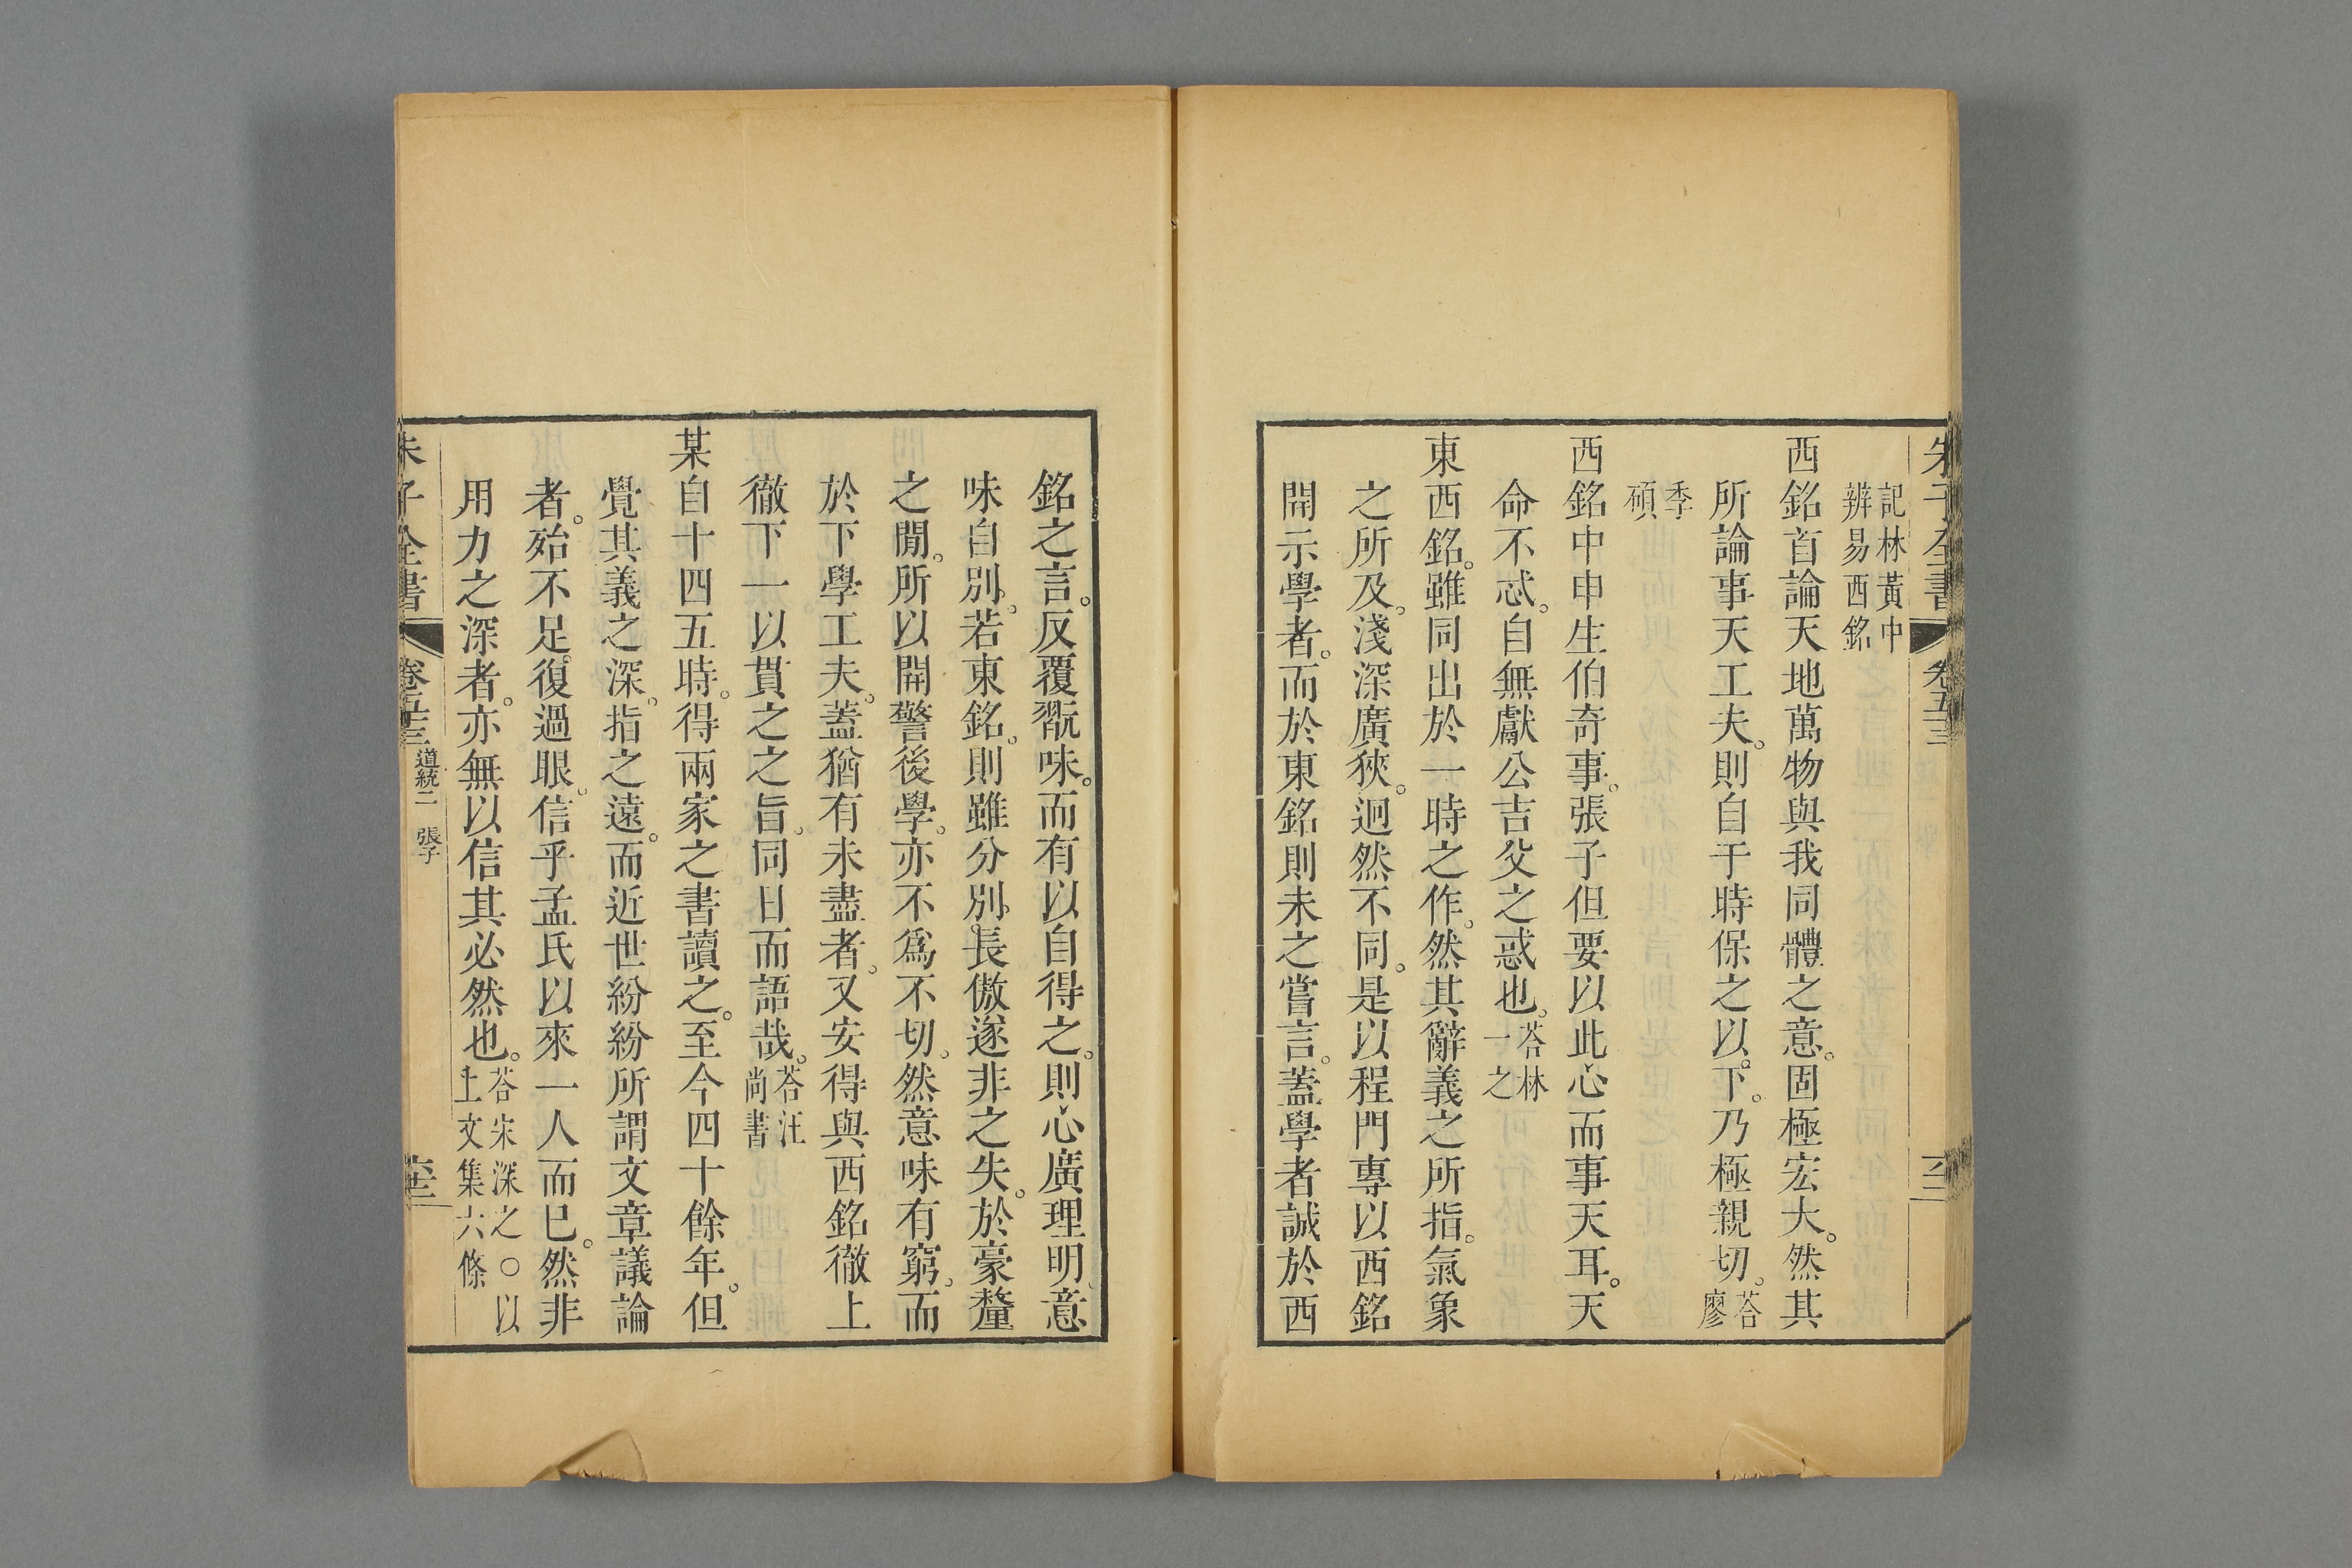 朱子全書 卷五十三 六十二
記林黃中
辨易西銘
西銘首論天地萬物與我同體之意。固極宏大。然其
所論事天工夫。則自于時保之以。下。乃極親切。荅廖
季
碩
西銘中申生伯奇事。張子但要以此心而事天耳。天
命不忒。自無獻公吉父之惑也。荅林一之
東西銘。雖同出於一時之作。然其辭義之所指。氣象
之所及。淺深廣狹。迥然不同。是以程門專以西銘
開示學者。而於東銘則未之嘗言。蓋學者誠於西
銘之言。反覆翫味。而有以自得之。則心廣理明。意
味自別。若東銘。則雖分別。長傲遂非之失。於豪釐
之閒。所以開警後學。亦不爲不切。然意味有窮。而
於下學工夫。蓋猶有未盡者。又安得與西銘徹上
徹下一以貫之之旨。同日而語哉。荅汪尚書
某自十四五時。得兩家之書讀之。至今四十餘年。但
覺其義之深。指之遠。而近世紛紛所謂文章議論
者。殆不足。復過眼。信乎孟氏以來一人而已。然非
用力之深者。亦無以信其必然也。荅宋深之○以上文集六條
朱子全書 卷五十三 道統二 張子 六十三